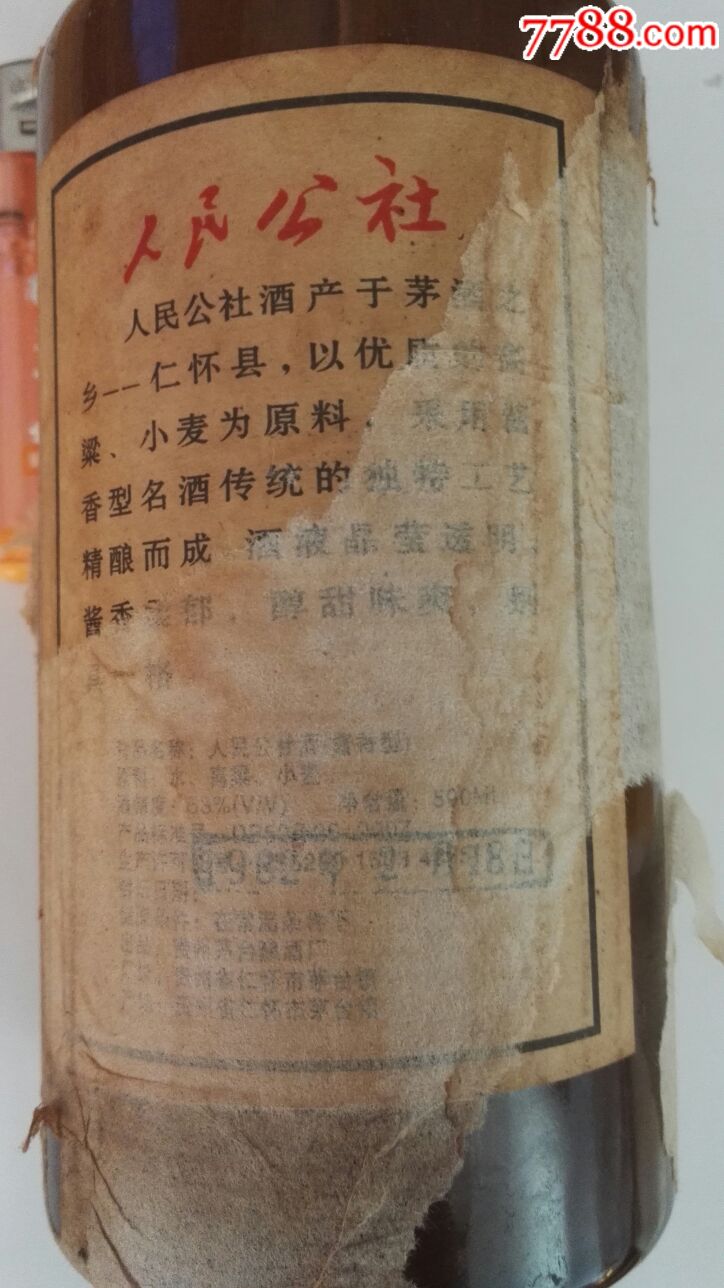 7788.com
人民公社
人民公社酒产于茅酒之
乡--仁怀县，以优质
粱、小麦为原料，采用酱
香型名酒传统的独特工艺
精酿而成 酒液晶莹透明、
酱香 郁，醇甜味爽，别
具一格
名称：人民公社酒(酱香型)
水、高粱、小麦
酒精度：53%(V/V) 净含量：500ML
产品标准号
生产许可
1982年2月18日
日期：
条件：在常温条件下
贵州茅台 酒厂
贵州省仁怀市茅台镇
贵州省仁怀市茅台镇